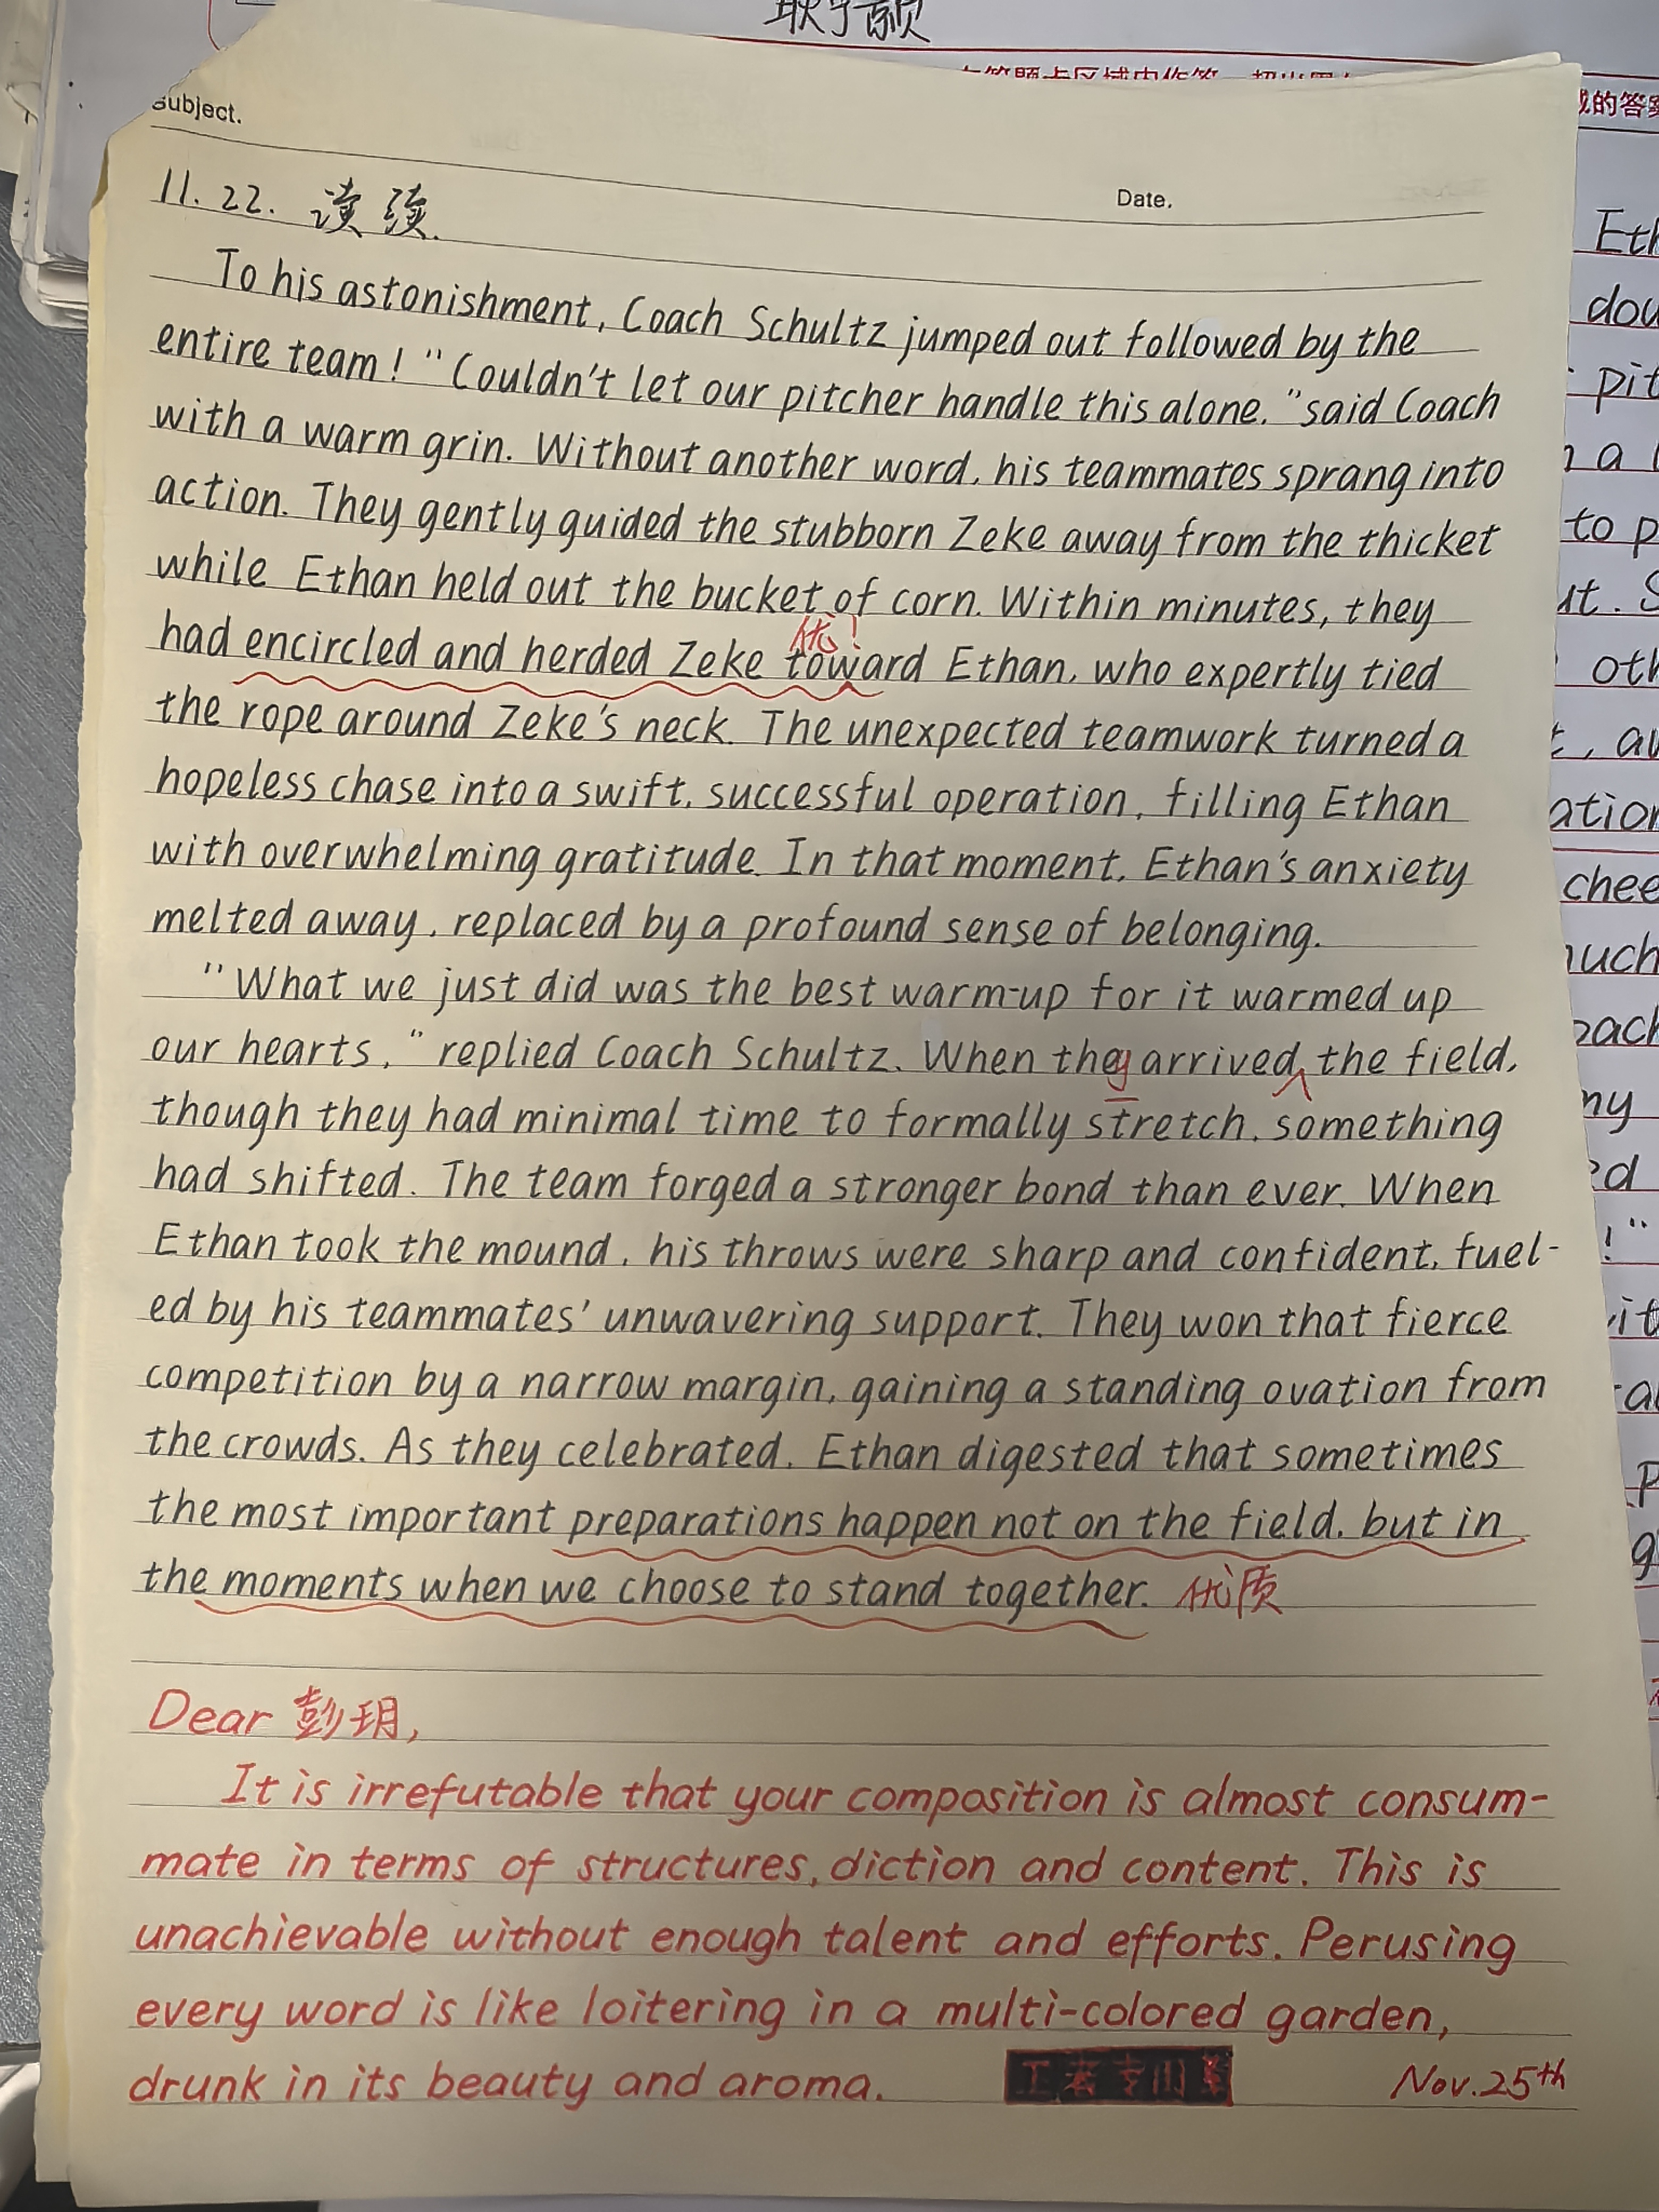 耿子颉
Subject.
Date.
11.22. 读续.
To his astonishment, Coach Schultz jumped out followed by the
entire team! "Couldn't let our pitcher handle this alone." said Coach
with a warm grin. Without another word, his teammates sprang into
action. They gently guided the stubborn Zeke away from the thicket
while Ethan held out the bucket of corn. Within minutes, they
优!
had encircled and herded Zeke toward Ethan, who expertly tied
the rope around Zeke's neck. The unexpected teamwork turned a
hopeless chase into a swift, successful operation, filling Ethan
with overwhelming gratitude. In that moment, Ethan's anxiety
melted away, replaced by a profound sense of belonging.
"What we just did was the best warm-up for it warmed up
our hearts," replied Coach Schultz. When they arrived the field,
though they had minimal time to formally stretch, something
had shifted. The team forged a stronger bond than ever. When
Ethan took the mound, his throws were sharp and confident, fuel-
ed by his teammates' unwavering support. They won that fierce
competition by a narrow margin, gaining a standing ovation from
the crowds. As they celebrated, Ethan digested that sometimes
the most important preparations happen not on the field, but in
the moments when we choose to stand together. 优质
Dear 彭玥,
It is irrefutable that your composition is almost consum-
mate in terms of structures, diction and content. This is
unachievable without enough talent and efforts. Perusing
every word is like loitering in a multi-colored garden,
drunk in its beauty and aroma.
Nov. 25th